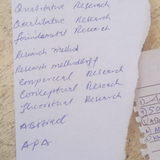 Quantitative Research
Qualitative Research
Fundamental Research
Research method
Research methodology
Emperical Research
Conceptual Research
Theoretical Research
APA